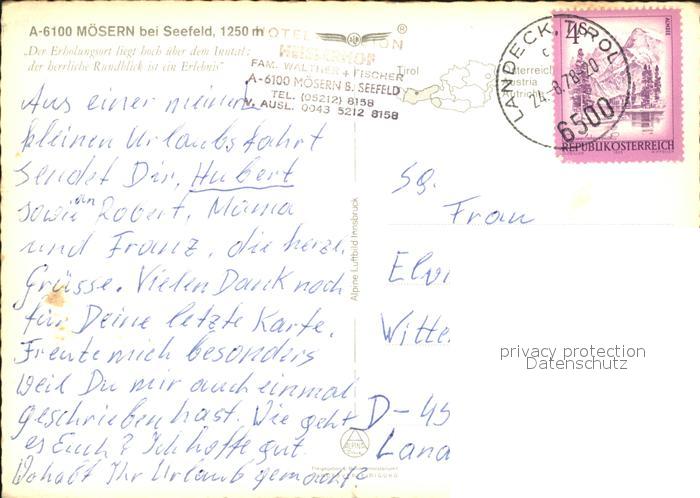 A-6100 MÖSERN bei Seefeld, 1250 m
„Der Erholungsort liegt hoch über dem Inntal:
der herrliche Rundblick ist ein Erlebnis"
HOTEL PENSION
®
FAM. WALTHER + FISCHER
A-6100 MÖSERN B. SEEFELD
TEL. (05212) 8158
V. AUSL. 0043 5212 8158
Tirol
Österreich
Austria
Autriche
LANDECK, TIROL
24.-8.78-20
6500
4 S
REPUBLIK ÖSTERREICH
Aus einer meinen
kleinen Urlaubsfahrt
sendet Dir, Hubert
sowie an Robert, Mama
und Franz, die herzl.
Grüsse. Vielen Dank noch
für Deine letzte Karte.
Freute mich besonders
weil Du mir auch einmal
geschrieben hast. Wie geht
es Euch? Ich hoffe gut.
Wo habt Ihr Urlaub gemacht?
Alpine Luftbild Innsbruck
Sg.
Frau
Elvi
Witte
D-45
Lana
privacy protection
Datenschutz